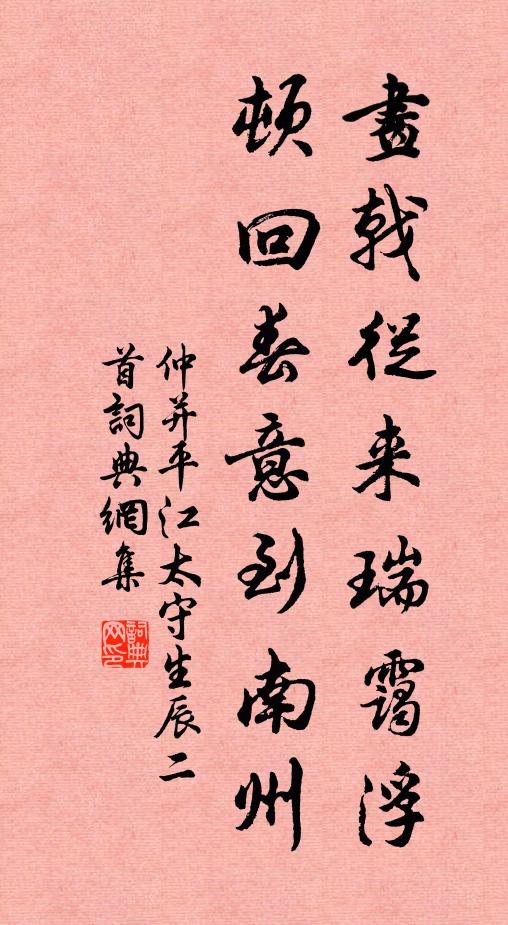 畫戟從来瑞靄浮
頓回春意到南州
仲并平江太守生辰二
首詞典網集
詞典
网印